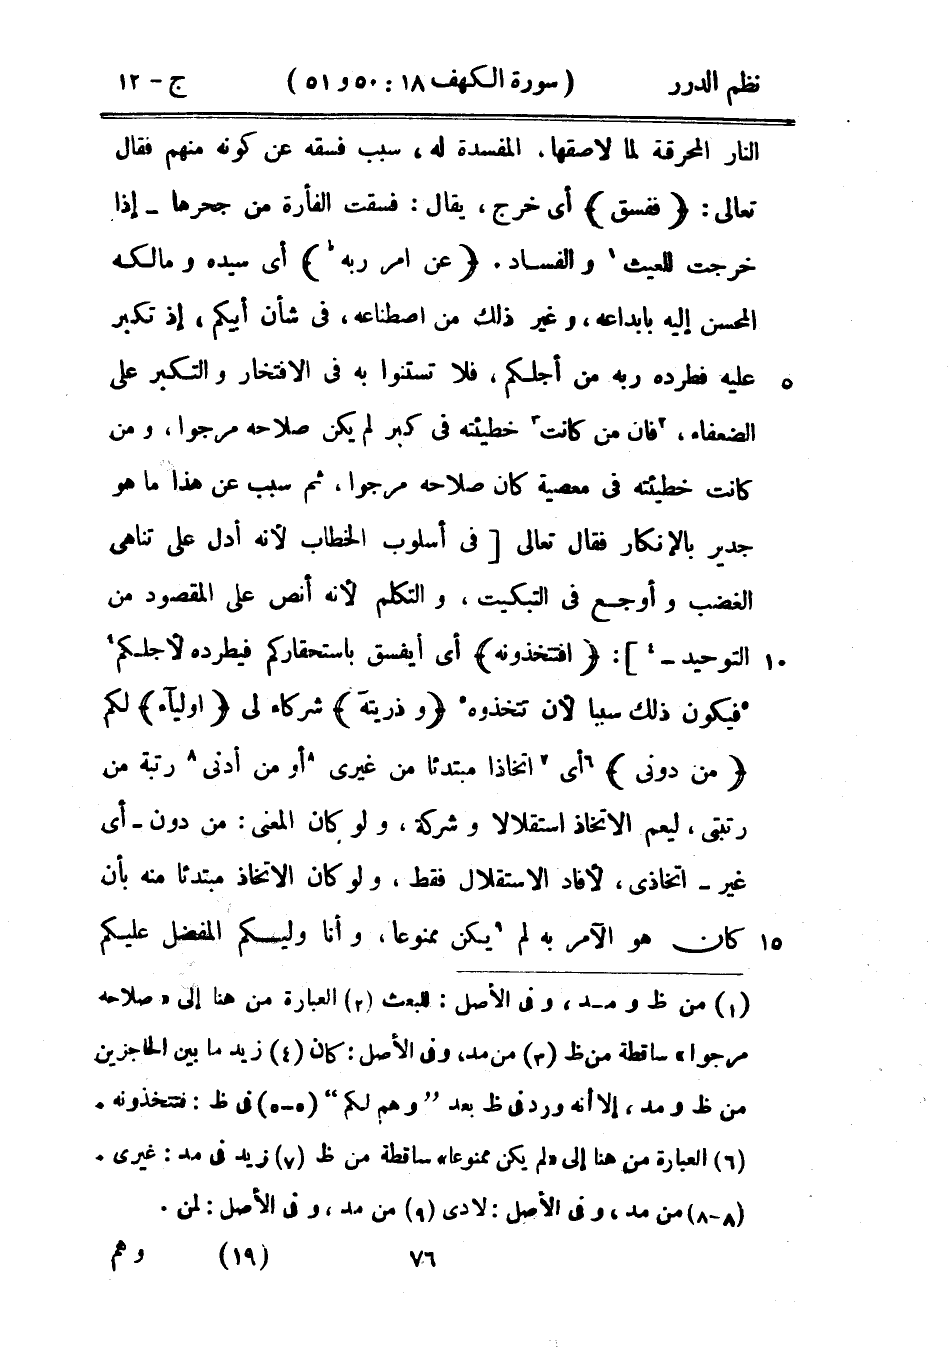 نظم الدرر (سورة الكهف ١٨ : ٥٠ و ٥١) ج - ١٢
النار المحرقة لما لاصقها. المفسدة له، سبب فسقه عن كونه منهم فقال
تعالى: ﴿ ففسق ﴾ أى خرج، يقال: فسقت الفأرة من جحرها - إذا
خرجت للعيث ١ و الفساد. ﴿ عن امر ربه ط ﴾ أى سيده و مالكه
المحسن إليه بابداعه، و غير ذلك من اصطناعه، فى شأن أبيكم، إذ تكبر
عليه فطرده ربه من أجلكم، فلا تستنوا به فى الافتخار و التكبر على ٥
الضعفاء، ٢ فان من كانت ٣ خطيئته فى كبر لم يكن صلاحه مرجوا، و من
كانت خطيئته فى معصية كان صلاحه مرجوا، ثم سبب عن هذا ما هو
جدير بالإنكار فقال تعالى [ فى أسلوب الخطاب لأنه أدل على تناهى
الغضب و أوجع فى التبكيت، و التكلم لأنه أنص على المقصود من
التوحيد - ٤ ]: ﴿ افتتخذونه ﴾ أى أيفسق باستحقاركم فيطرده لأجلكم ١٠
٥ فيكون ذلك سببا لأن تتخذوه ٥ ﴿ و ذريته ﴾ شركاء لى ﴿ اوليآء ﴾ لكم
﴿ من دونى ﴾ ٦ أى ٧ اتخاذا مبتدئا من غيرى ٨ أو من أدنى ٨ رتبة من
رتبتى، ليعم الاتخاذ استقلالا و شركة، و لو كان المعنى: من دون - أى
غير - اتخاذى، لأفاد الاستقلال فقط، و لو كان الاتخاذ مبتدئا منه بأن
كان هو الآمر به لم ٩ يكن ممنوعا، و أنا وليكم المفضل عليكم ١٥
(١) من ظ و مد، و فى الأصل: للبعث (٢) العبارة من هنا إلى « صلاحه
مرجوا » ساقطة من ظ (٣) من مد، وفى الأصل: كان (٤) زيد ما بين الحاجزين
من ظ و مد، إلا أنه ورد فى ظ بعد " و هم لكم " (٥-٥) فى ظ: فتتخذونه.
(٦) العبارة من هنا إلى « لم يكن ممنوعا » ساقطة من ظ (٧) زيد فى مد: غيرى.
(٨-٨) من مد، و فى الأصل: لادى (٩) من مد، و فى الأصل: لمن.
٧٦ (١٩) و هم